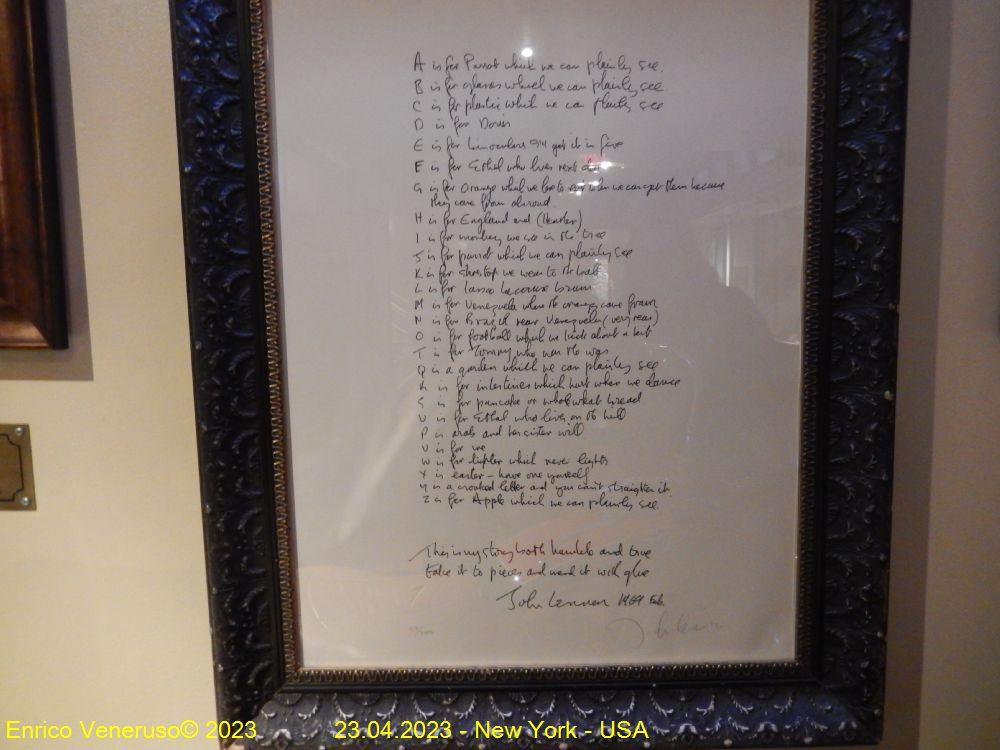 A is for Parrot which we can plainly see.
B is for glasses which we can plainly see
C is for plastic which we can plainly see
D is for Doris
E is for binoculars I'll get it in five
F is for Ethel who lives next door
G is for Orange which we love to eat when we can get them because
they come from abroad
H is for England and (Heather)
I is for monkey we see in the tree
J is for parrot which we can plainly see
K is for shoetop we wear to the ball
L is for because brown
M is for Venezuela where the oranges come from
N is for Brazil near Venezuela (very near)
O is for football which we kick about a bit
T is for Tommy who won the war
Q is a garden which we can plainly see
R is for intestines which hurt when we dance
S is for pancake or whole wheat bread
U is for Ethel who lives on the hill
P is arab and her sister will
V is for me
W is for lighter which never lights
X is easter - have one yourself
Y is a crooked letter and you can't straighten it
Z is for Apple which we can plainly see.
This is my story both humble and true
take it to pieces and mend it with glue
John Lennon 1969 Feb.
Enrico Veneruso© 2023
23.04.2023 - New York - USA